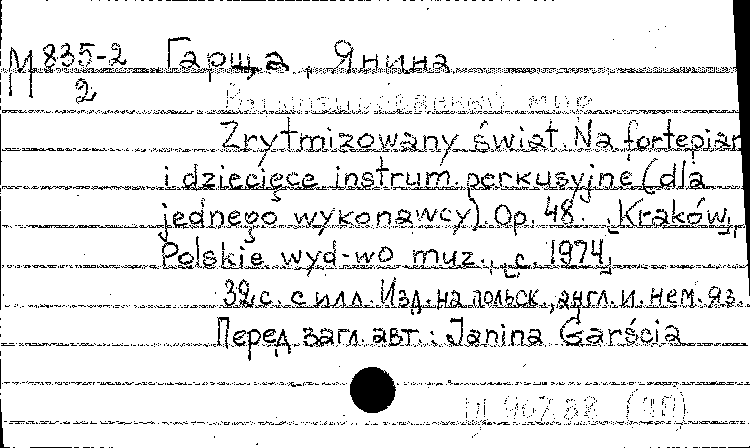 М 835-2
2
Гарща, Янина
мир
Zrytmizowany świat. Na fortepian
i dziecięce instrum. perkusyjne (dla
jednego wykonawcy). Op. 48. [Kraków],
Polskie wyd-wo muz., [c. 1974]
32 с. с илл. Изд. на польск., англ. и. нем. яз.
Перед загл. авт.: Janina Garścia